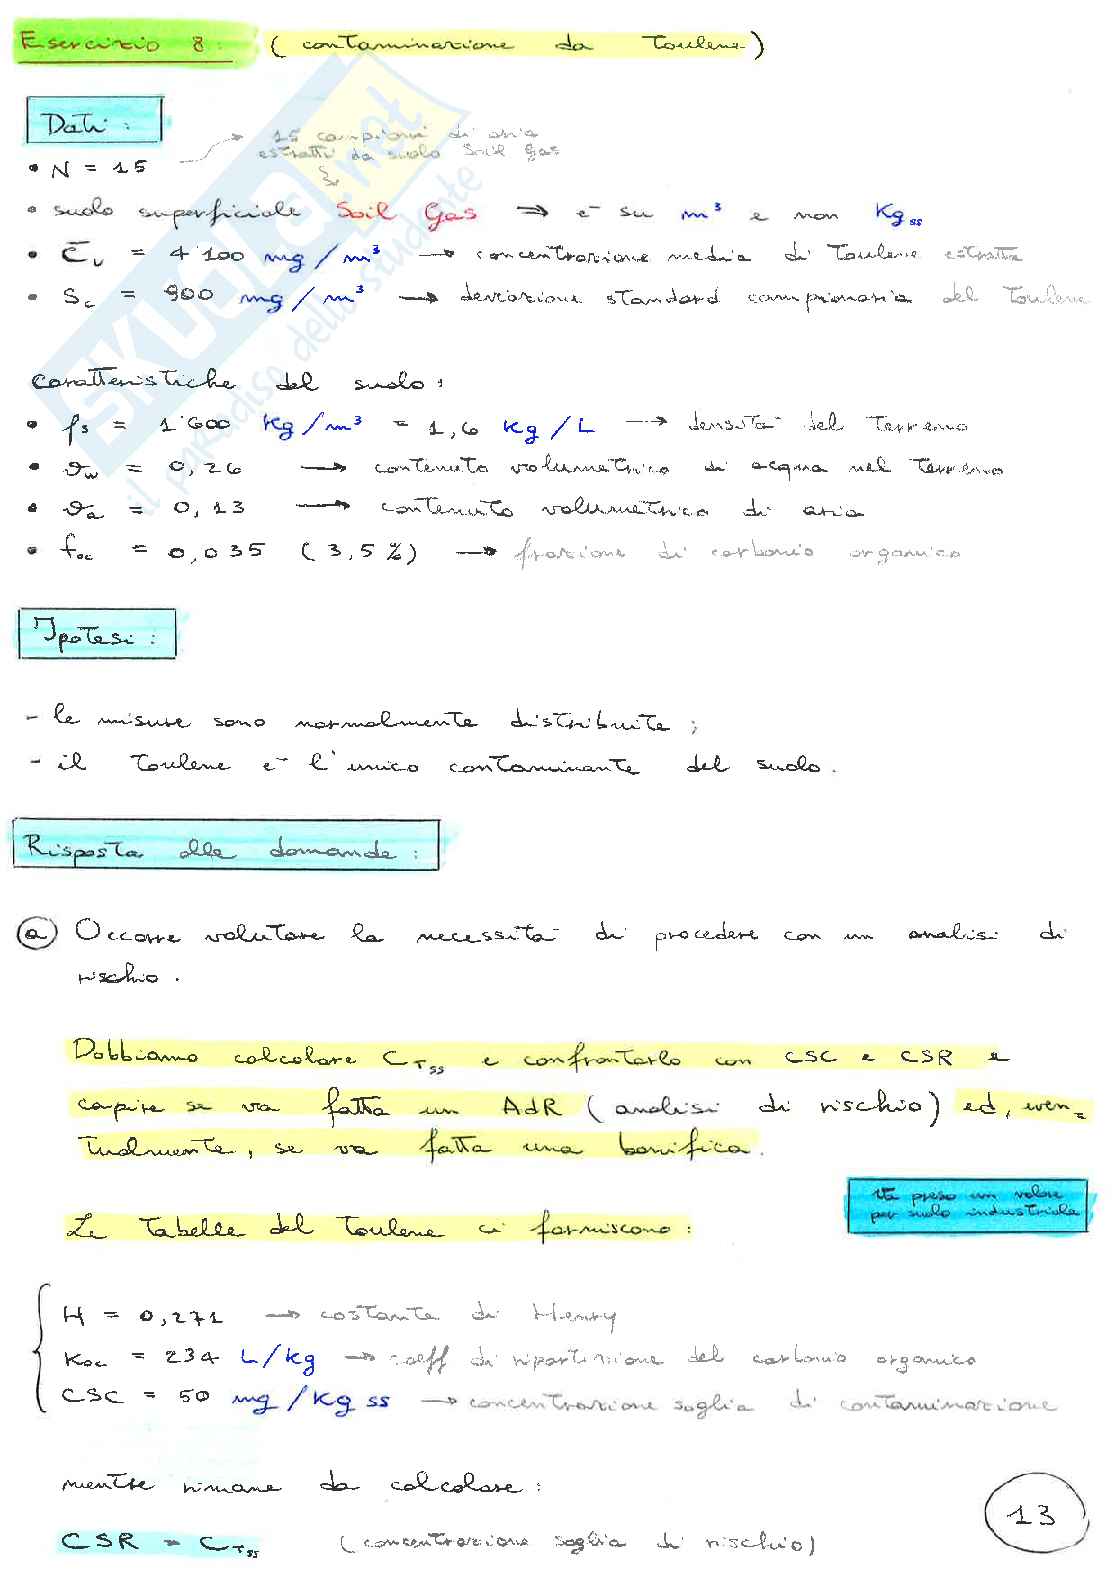 Esercizio 8: (contaminazione da toulene)
Dati:
15 campioni di aria
estratti da suolo Soil Gas
• N = 15
• suolo superficiale Soil Gas → è su m³ e non Kgss
• C̄v = 4'100 mg/m³ → concentrazione media di Toulene estratta
• Sc = 900 mg/m³ → deviazione standard campionaria del Toulene
caratteristiche del suolo:
• ρs = 1'600 Kg/m³ = 1,6 Kg/L → densità del terreno
• ϑw = 0,26 → contenuto volumetrico di acqua nel terreno
• ϑa = 0,13 → contenuto volumetrico di aria
• foc = 0,035 (3,5%) → frazione di carbonio organico
Ipotesi:
- le misure sono normalmente distribuite;
- il toulene è l'unico contaminante del suolo.
Risposta alle domande:
a) Occorre valutare la necessità di procedere con un analisi di
rischio.
Dobbiamo calcolare CTss e confrontarlo con CSC e CSR e
capire se va fatta un AdR (analisi di rischio) ed, even=
tualmente, se va fatta una bonifica.
Va preso un valore
per suolo industriale
Le tabelle del toulene ci forniscono:
H = 0,271 → costante di Henry
Koc = 234 L/kg → coeff di ripartizione del carbonio organico
CSC = 50 mg/Kg ss → concentrazione soglia di contaminazione
mentre rimane da calcolare:
CSR = CTss (concentrazione soglia di rischio)
13
SKUOLA.net
il paradiso dello studente